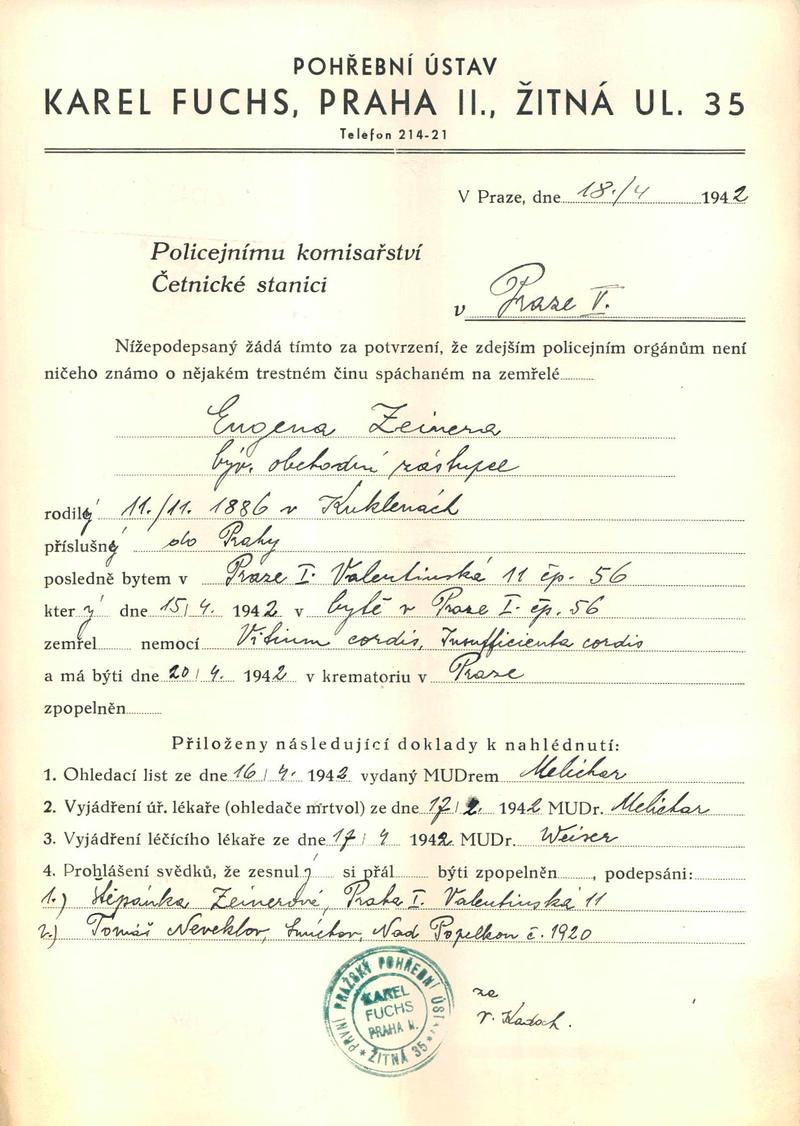 POHŘEBNÍ ÚSTAV
KAREL FUCHS, PRAHA II., ŽITNÁ UL. 35
Telefon 214-21
V Praze, dne 18./4 1942
Policejnímu komisařství
Četnické stanici
v Praze V.
Nížepodepsaný žádá tímto za potvrzení, že zdejším policejním orgánům není
ničeho známo o nějakém trestném činu spáchaném na zemřelé
Eugena Zeinera
býv. obchodní zástupce
rodilý 11./11. 1886 v Kuklenách
příslušný do Prahy
posledně bytem v Praze I. Valentinská 11 čp. 56
který dne 15/4. 1942 v bytě v Praze I. čp. 56
zemřel nemocí Vitium cordis, Insufficienta cordis
a má býti dne 20/4. 1942 v krematoriu v Praze
zpopelněn
Přiloženy následující doklady k nahlédnutí:
1. Ohledací list ze dne 16/4. 1942 vydaný MUDrem Melichar
2. Vyjádření úř. lékaře (ohledače mrtvol) ze dne 17/ 1942 MUDr. Melichar
3. Vyjádření léčícího lékaře ze dne 17/4 1942 MUDr. Weiser
4. Prohlášení svědků, že zesnulý si přál býti zpopelněn, podepsáni:
1.) Štěpánka Zeinerová, Praha I. Valentinská 11
2.) Tomáš Neveklov, Smíchov, Nad Popelkou č. 1920
PRVNÍ PRAŽSKÝ POHŘEBNÍ ÚST.
KAREL
FUCHS
PRAHA II.
ŽITNÁ 35
za